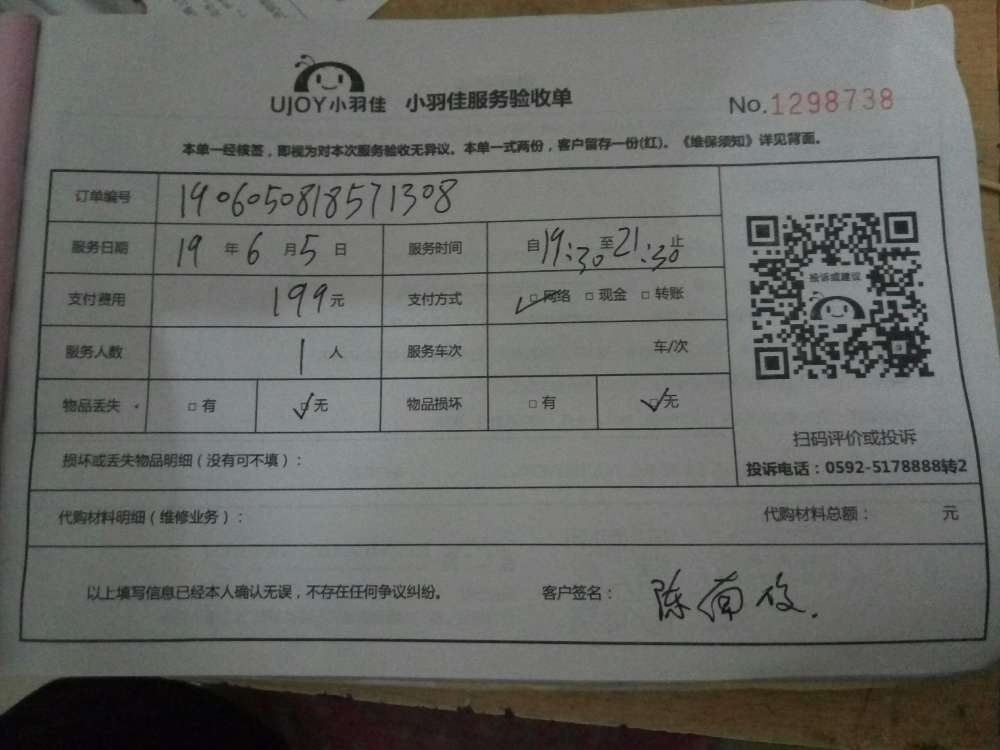 UJOY小羽佳 小羽佳服务验收单 No.1298738
本单一经核签，即视为对本次服务验收无异议。本单一式两份，客户留存一份(红)。《维保须知》详见背面。
订单编号 1906050818571308
服务日期 19 年 6 月 5 日 服务时间 自19:30至21:30止
支付费用 199元 支付方式 ☑网络 □现金 □转账
服务人数 1 人 服务车次 车/次
物品丢失 □有 ☑无 物品损坏 □有 ☑无
投诉或建议
扫码评价或投诉
投诉电话：0592-5178888转2
损坏或丢失物品明细（没有可不填）：
代购材料明细（维修业务）： 代购材料总额： 元
以上填写信息已经本人确认无误，不存在任何争议纠纷。 客户签名： 陈